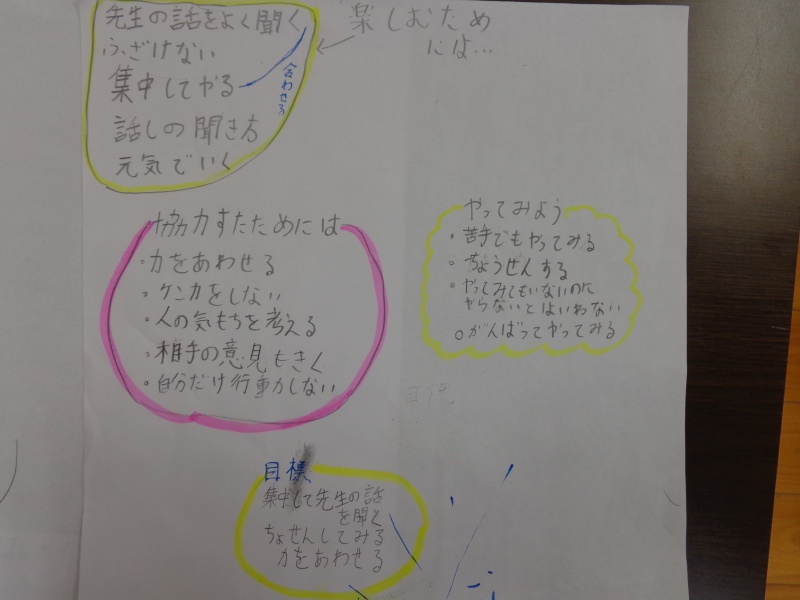 楽しむため
には…
先生の話をよく聞く
ふざけない
集中してやる
合わせる
話しの聞き方
元気でいく
協力すたためには
・力をあわせる
・ケンカをしない
・人の気もちを考える
・相手の意見もきく
・自分だけ行動しない
やってみよう
・苦手でもやってみる
・ちょうせんする
・やってみてもいないのに
やらないとはいわない
○がんばってやってみる
目標
集中して先生の話
を聞く
ちょせんしてみる
力をあわせる